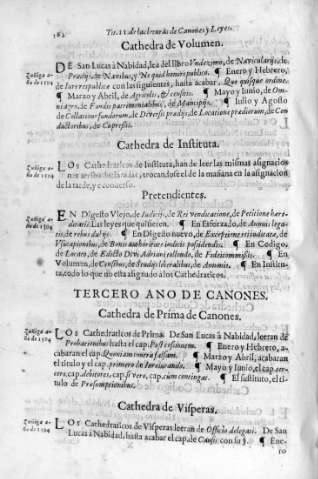 162 Tit. 11 de las lecturas de Canones y Leyes.
Cathedra de Volumen.
DE San Lucas à Nabidad, lea del libro Vndezimo, de Nauicularijs, de
Predijs, de Nauibus, y Ne quid oneri publico. ¶ Enero y Hebrero,
de iure reipublicæ con las siguientes, hasta acabar, Quo quisque ordine.
¶ Marzo y Abril, de Agricolis, & censitis. ¶ Mayo y Iunio, de Om-
ni agro, de Fundis patrimonialibus, de Municipijs. ¶ Iulio y Agosto
de Collatione fundorum, de Diuersis predijs, de Locatione prediorum, de Con
ductoribus, de Cupressis.
Cathedra de Instituta.
LOs Cathedraticos de Instituta, han de leer las mismas asignaciones
arriba declaradas, trocandose el de la mañana en la asignacion
de la tarde, y econuerso.
Pretendientes.
EN Digesto Viejo, de Iudicijs, de Rei vendicatione, de Petitione hære-
ditatis: Las leyes que quisieren. ¶ En Esforzado, de Annuis lega-
tis, de rebus dubijs. ¶ En Digesto nueuo, de Exceptione rei iudicatæ, de
Vsucapionibus, de Bonis authoritate iudicis possidendis. ¶ En Codigo,
de Locato, de Edicto Diui Adriani tollendo, de Fideicommissis. ¶ En
Volumen, de Censibus, de Annonis. ¶ En Institu-
ta, todo lo que no esta asignado a los Cathedraticos.
TERCERO ANO DE CANONES.
Cathedra de Prima de Canones.
LOs Cathedraticos de Prima. De San Lucas à Nabidad, leeran de
Probationibus hasta el cap. Post cessionem. ¶ Enero y Hebrero, a-
cabaran el cap. Quoniam contra falsam. ¶ Marzo y Abril, acabaran
el titulo y el cap. primero de Iureiurando. ¶ Mayo y Iunio, el cap. ter-
cero, cap. debitores, cap. si vero, cap. cum contingat. ¶ El sustituto, el ti-
tulo de Presumptionibus.
Cathedra de Visperas.
LOs Cathedraticos de Visperas leeran de Officio delegati. De San
Lucas à Nabidad, hasta acabar el cap. de Causis con su §. ¶ Ene-
ro